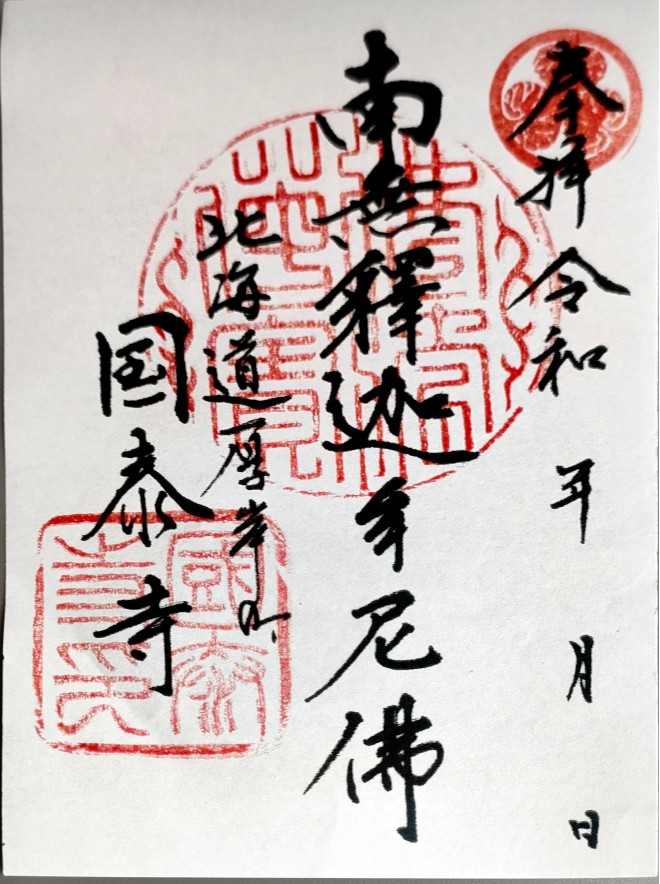 奉拝 令和 年 月 日
南無釋迦牟尼佛
北海道厚岸町
国泰寺